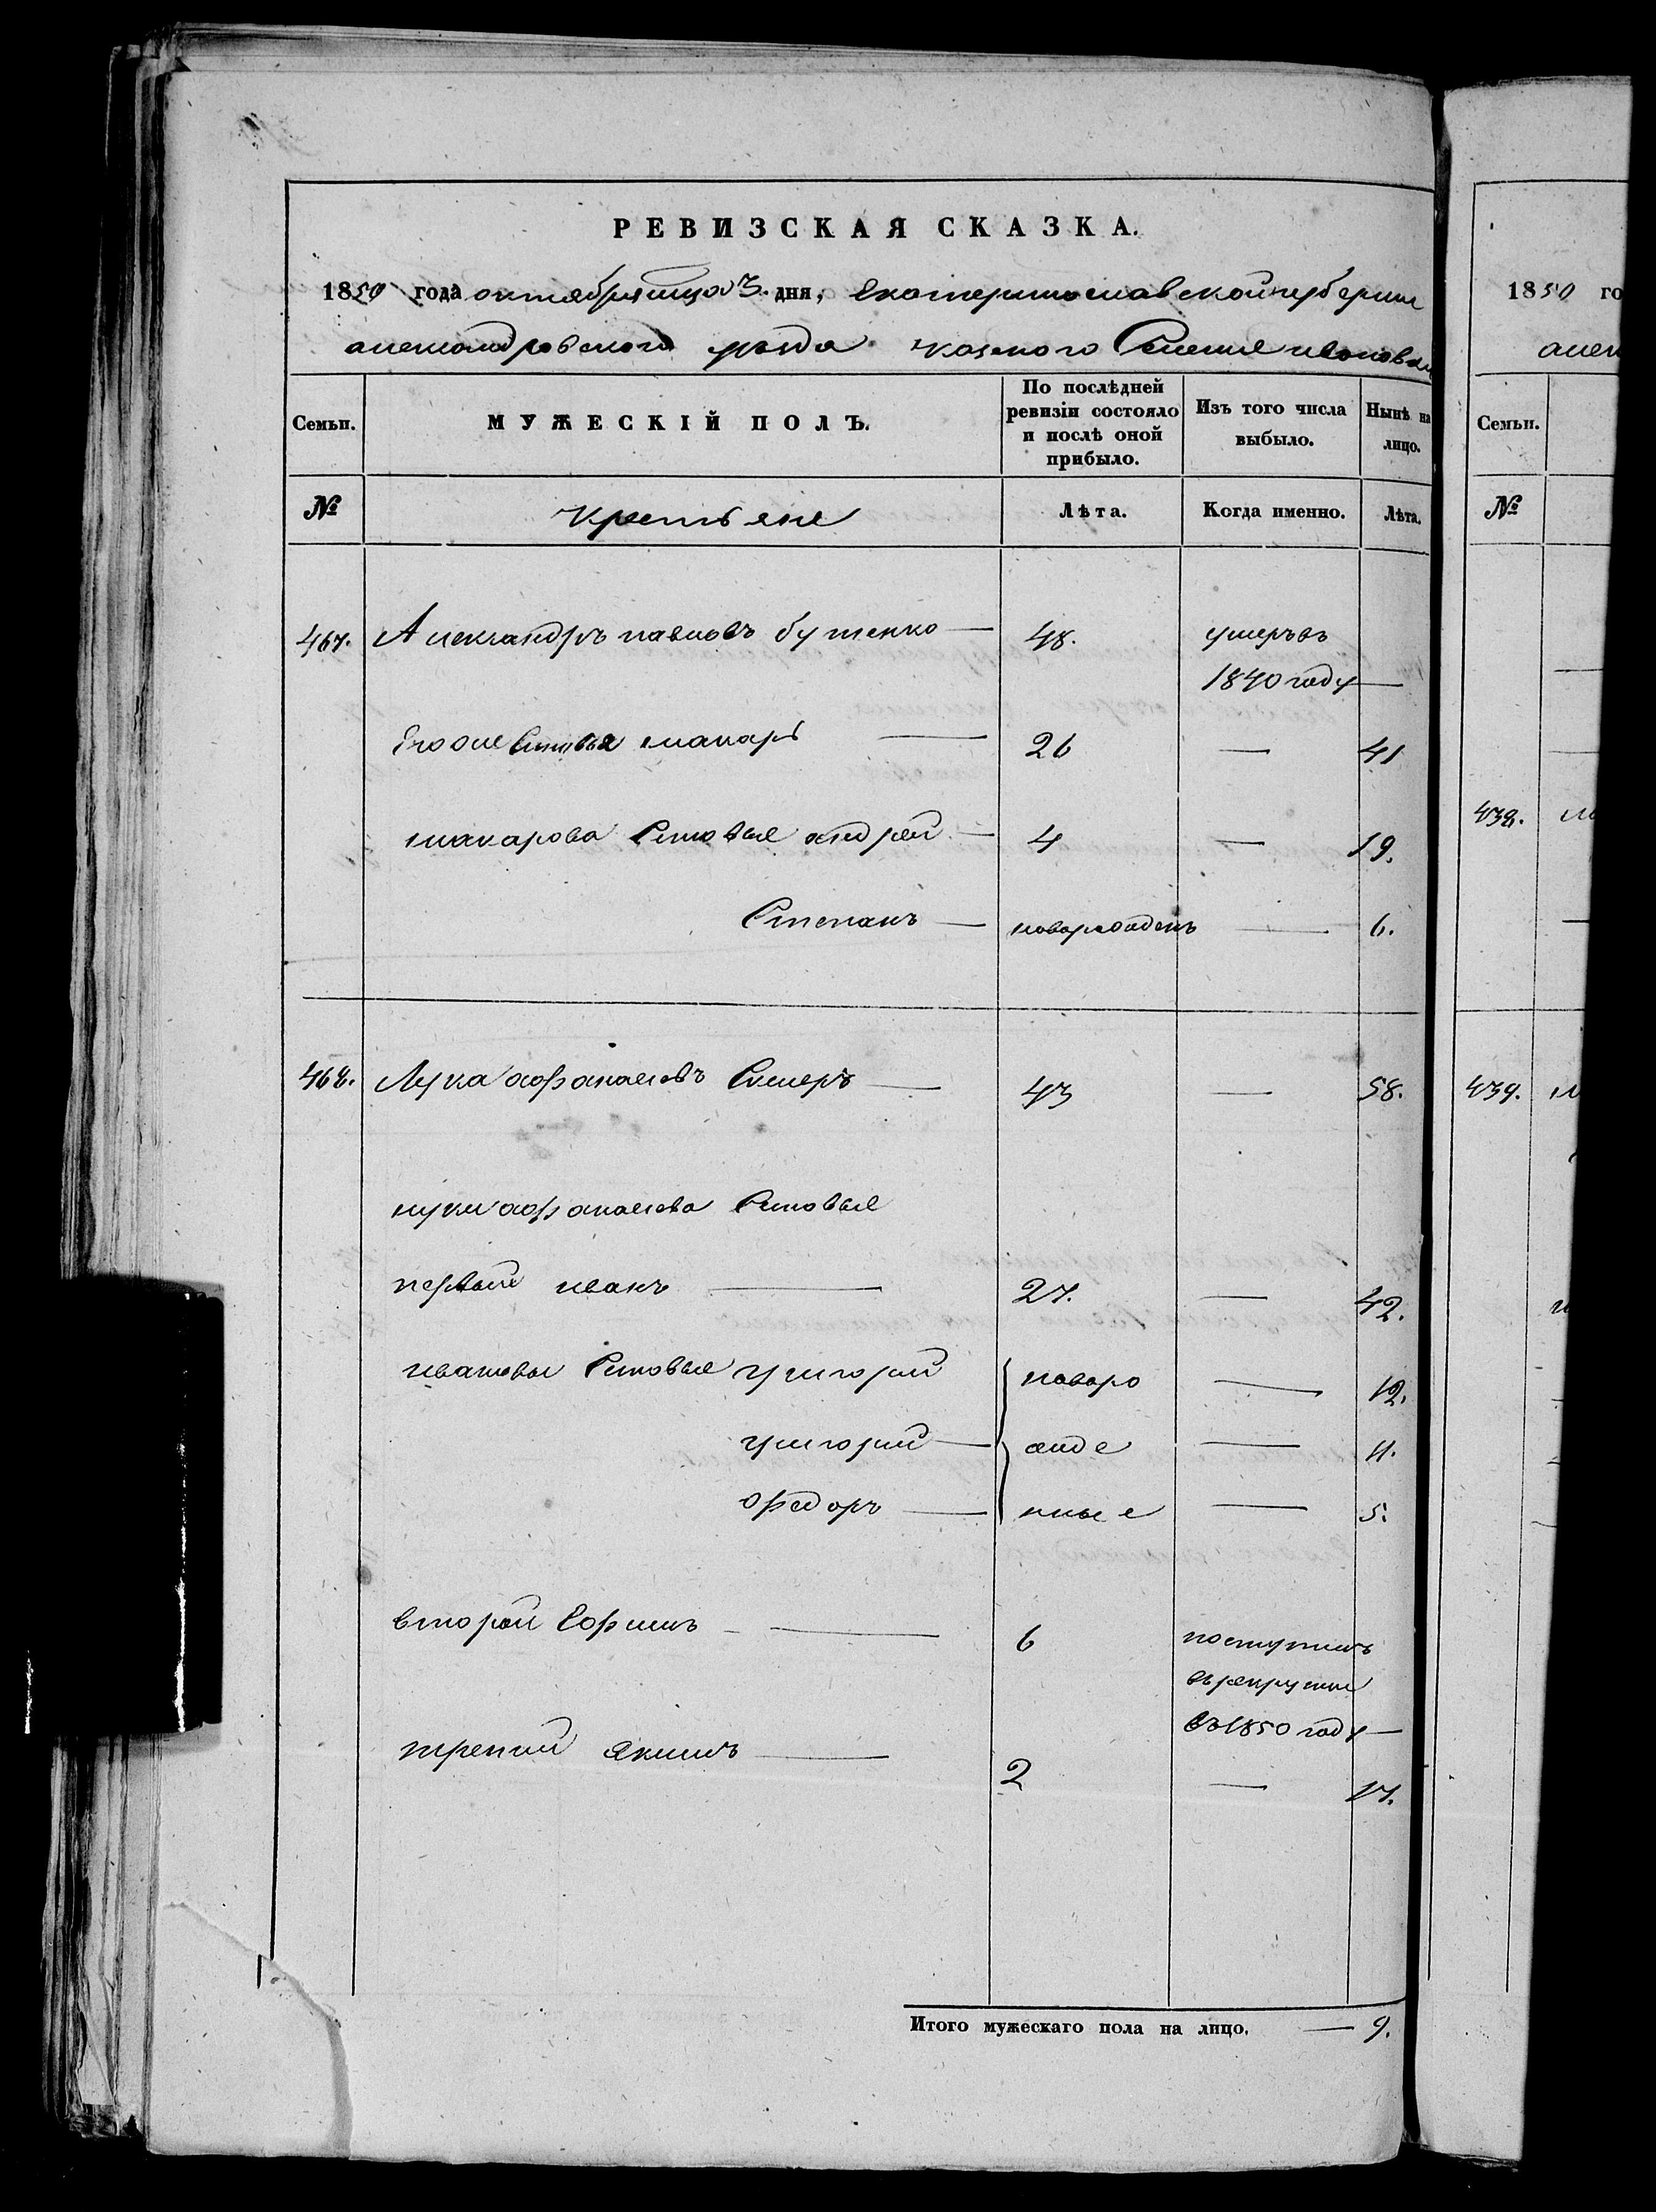 РЕВИЗСКАЯ СКАЗКА.
1850 года октября дня, Екатеринославской губернии
александровского уезда казеного Селения ивановки
Семьи. МУЖЕСКІЙ ПОЛЪ. По послѣдней ревизіи состояло и послѣ оной прибыло. Изъ того числа выбыло. Нынѣ на лицо.
№ крестьяне Лѣта. Когда именно. Лѣта.
467. Александръ павловъ бутенко — 48. умеръ въ
1840 году —
Его же Сыновья макаръ — 26 — 41
макарова Сыновья андрей — 4 — 19.
Степанъ — наворождень — 6.
468. Лука афанасиевъ — 43 — 58.
луки афанасиева Сыновья
первый иванъ — 27. — 42.
ивановы Сыновья григорий наваро — 12.
григорий — жде — 11.
федоръ — нные — 5.
второй Ефимъ — 6 поступилъ
въ рекруты
въ 1850 году —
третий якимъ — 2 — 17.
Итого мужескаго пола на лицо. — 9.
1850 го
алек
Семьи.
№
439.